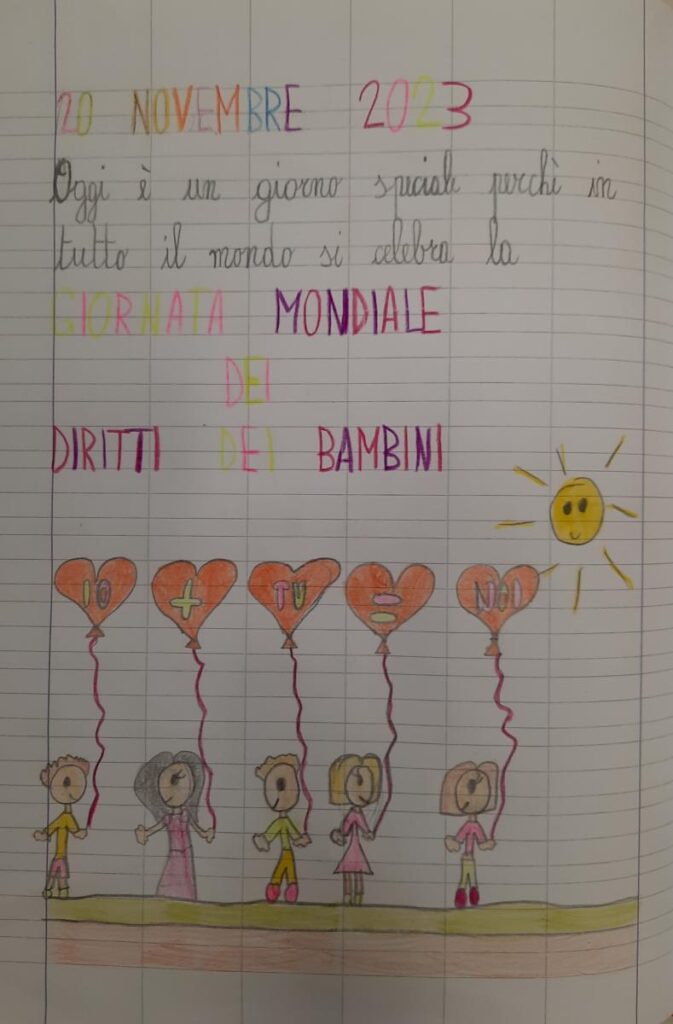 20 NOVEMBRE 2023
Oggi è un giorno speciale perchì in
tutto il mondo si celebra la
GIORNATA MONDIALE
DEI
DIRITTI DEI BAMBINI
IO + TU = NOI